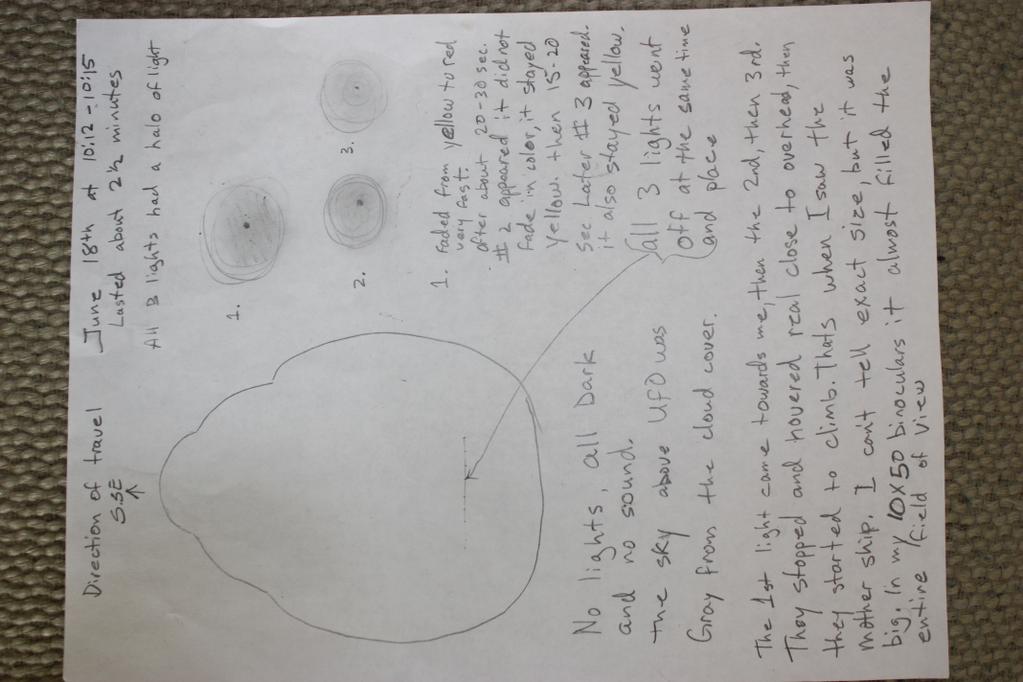 Direction of travel
S.SE
June 18th at 10:12-10:15
Lasted about 2½ minutes
All 3 lights had a halo of light
1.
2.
3.
1. Faded from yellow to red
very fast.
after about 20-30 sec.
# 2 appeared it did not
fade in color, it stayed
yellow. then 15-20
sec later # 3 appeared.
it also stayed yellow.
all 3 lights went
off at the same time
and place
No lights, all Dark
and no sound.
the sky above UFO was
Gray from the cloud cover.
The 1st light came towards me, then the 2nd, then 3rd.
They stopped and hovered real close to overhead, then
they started to climb. Thats when I saw the
mother ship. I can't tell exact size, but it was
big. In my 10X50 binoculars it almost filled the
entire field of view